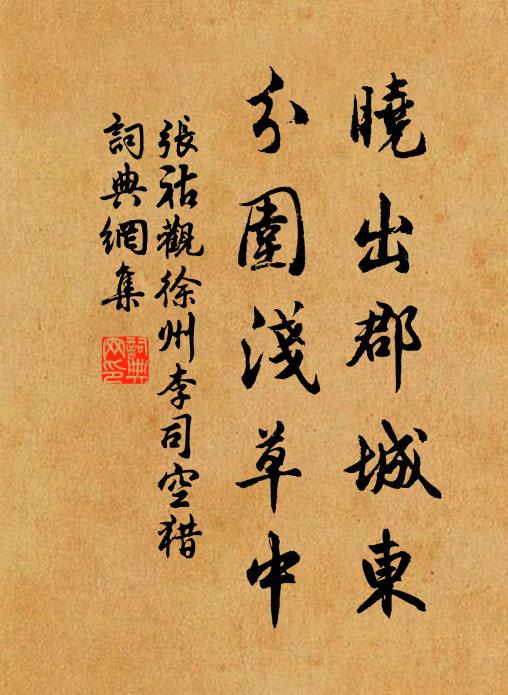 曉出郡城東
分圍淺草中
張祜觀徐州李司空猎
詞典網集
詞典網印